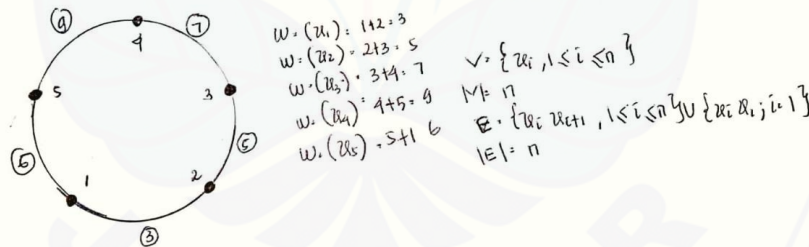 ⑨
⑦
4
5
3
⑥
⑤
1
2
③
w.(v₁) = 1+2 = 3
w.(v₂) = 2+3 = 5
w.(v₃) = 3+4 = 7
w.(v₄) = 4+5 = 9
w.(v₅) = 5+1 6
V = {vᵢ, 1 ≤ i ≤ n}
|V| = n
E = {vᵢ vᵢ₊₁, 1 ≤ i ≤ n} ∪ {vᵢ vᵢ; i=1}
|E| = n